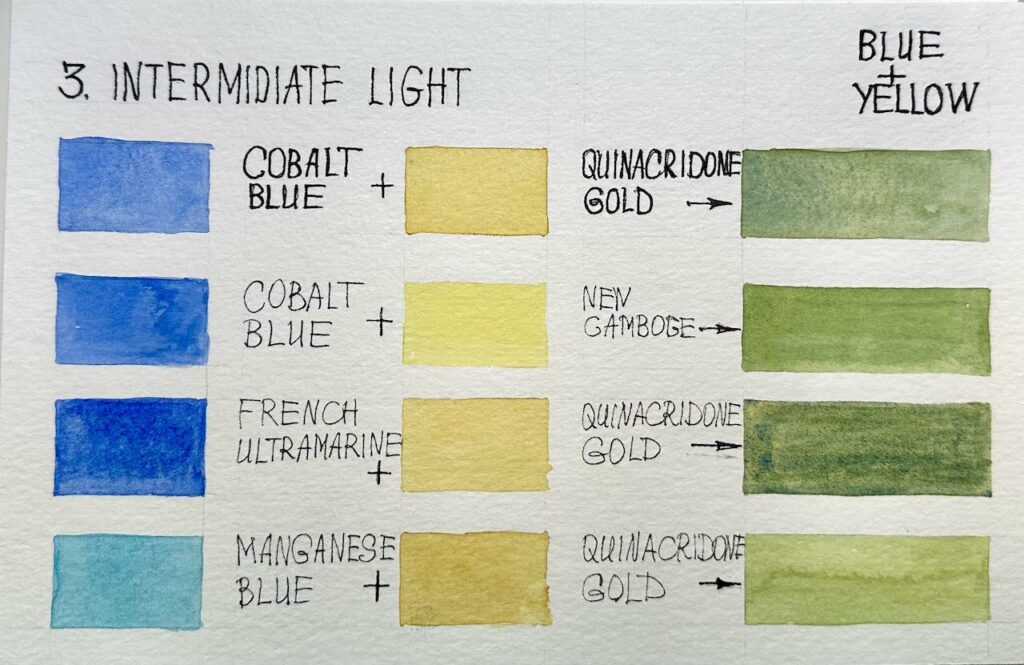 3. INTERMIDIATE LIGHT
BLUE
+
YELLOW
COBALT
BLUE +
QUINACRIDONE
GOLD →
COBALT
BLUE +
NEW
GAMBOGE →
FRENCH
ULTRAMARINE
+
QUINACRIDONE
GOLD →
MANGANESE
BLUE +
QUINACRIDONE
GOLD →